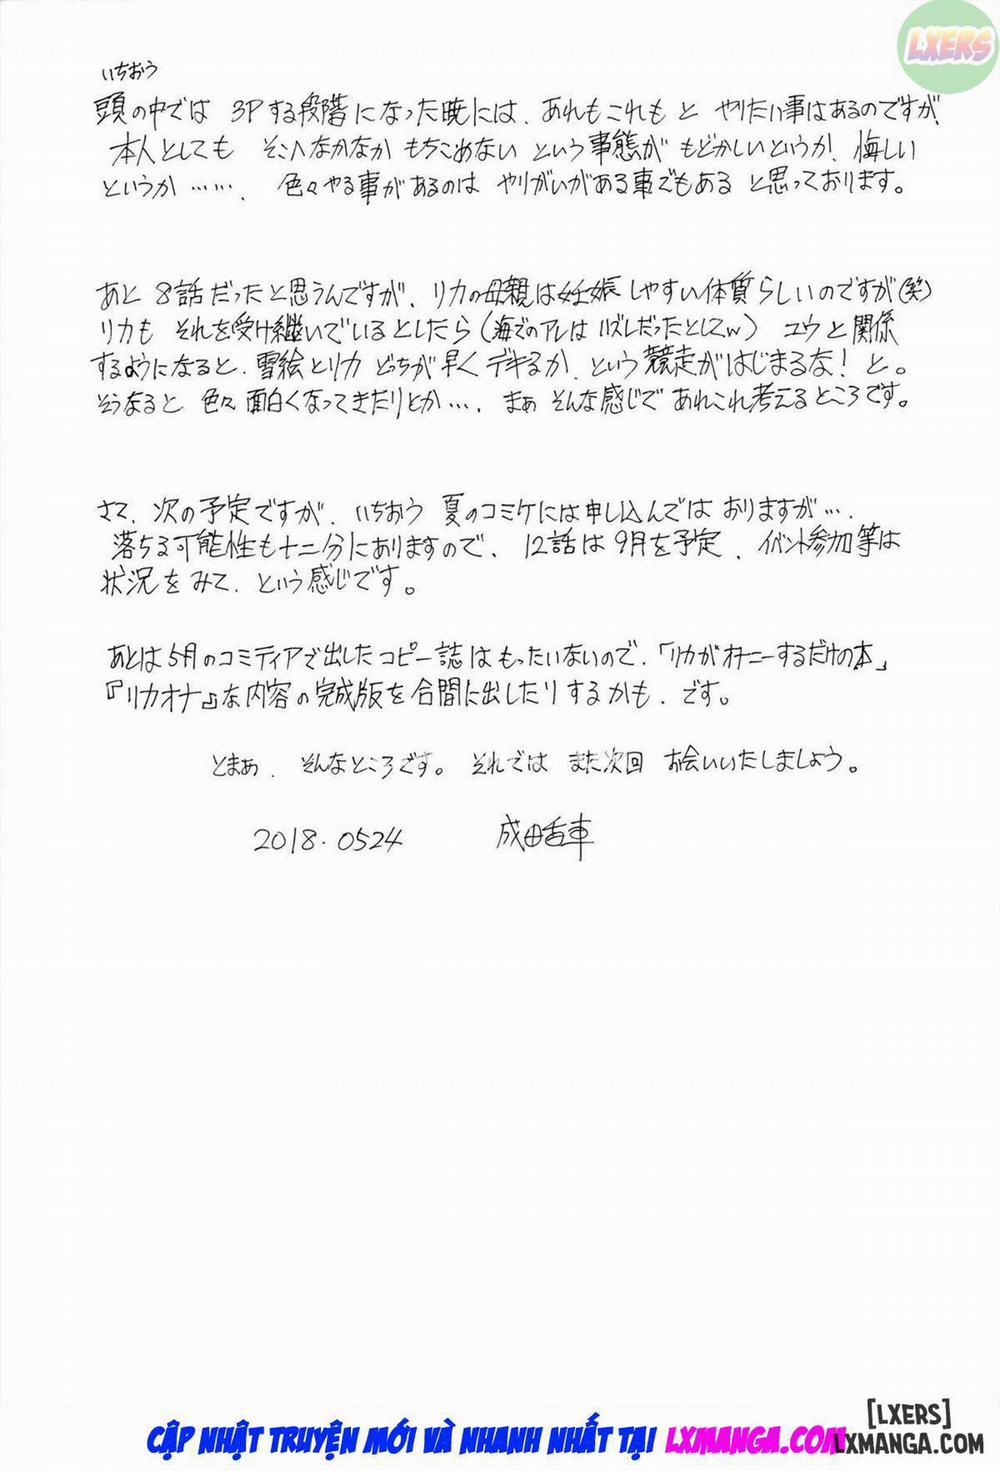 LXERS
いちおう
頭の中では 3Pする段階になった暁には、あれもこれもと やりたい事はあるのですが、
本人としても そこへなかなか もちこめない という事態が もどかしいというか、悔しい
というか……、色々やる事があるのは やりがいがある事でもある と思っております。
あと 8話だったと思うんですが、リカの母親は妊娠しやすい体質らしいのですが(笑)
リカも それを受け継いでいるとしたら(海でのアレはハズレだったとしてw) ユウと関係
するようになると、雪絵とリカ どっちが早くデキるか、という競走がはじまるな!と。
そうなると 色々面白くなってきたりとか…、まぁ そんな感じで あれこれ考えるところです。
さて、次の予定ですが、いちおう 夏のコミケには申し込んでは おりますが…、
落ちる可能性も十二分にありますので、12話は9月を予定、イベント参加等は
状況をみて、という感じです。
あとは5月のコミティアで出したコピー誌はもったいないので、「リカがオナニーするだけの本」
『リカオナ』な内容の完成版を合間に出したりするかも、です。
とまぁ、そんなところです。それでは また次回 お会いいたしましょう。
2018.0524 成田香車
[LXERS]
CẬP NHẬT TRUYỆN MỚI VÀ NHANH NHẤT TẠI LXMANGA.COM
LXMANGA.COM